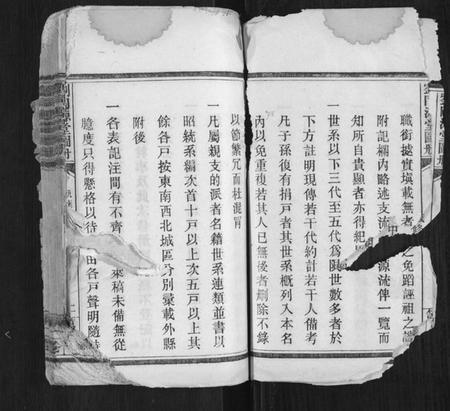 職銜據實填載無者
之免蹈誣祖之譏
附記欄内略述支流
源流俾一覽而
知所自貴顯者亦得紀
一世系以下三代至五代為
世數多者於
下方註明現傳若干代約計若干人備考
凡子孫後有捐戸者其世系概列入本名
内以免重複若其人已無後者删除不錄
以節繁冗而杜混冒
一凡屬親支的派者名籍世系連類並書以
昭統系編次首十戸以上次五戸以上其
餘各戸按東南西北城區分别彙載外縣
附後
一各表記注間有不齊
來稿未備無從
臆度只得懸格以待
由各戸聲明隨時